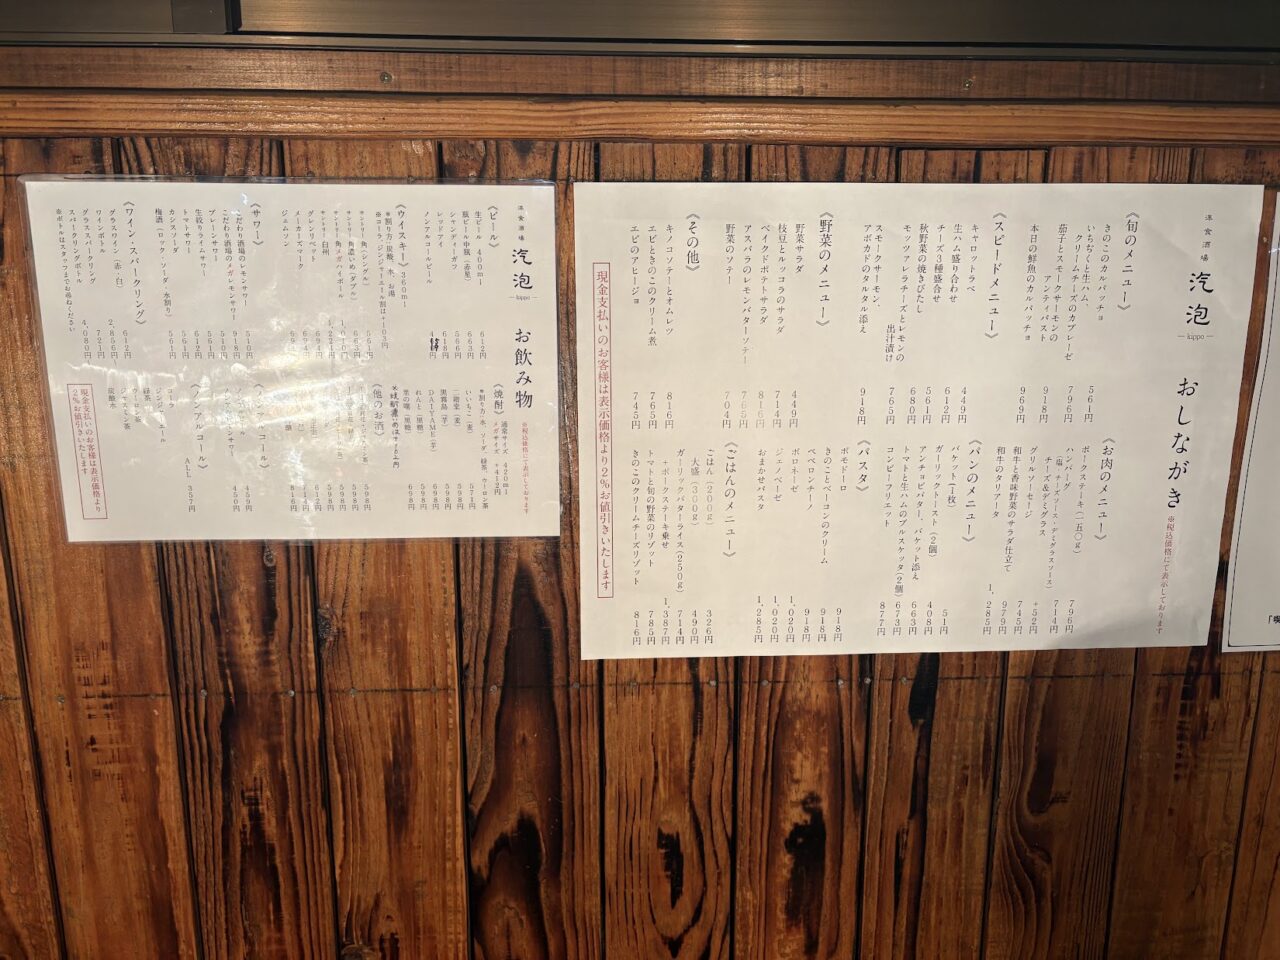 洋食酒場
汽泡
― kippo ―
おしながき
※税込価格にて表示しております
《旬のメニュー》
きのこのカルパッチョ 561円
いちぢくと生ハム、
クリームチーズのカプレーゼ 796円
茄子とスモークサーモンの
アンティパスト 918円
本日の鮮魚のカルパッチョ 969円
《スピードメニュー》
キャロットラペ 449円
生ハム盛り合わせ 612円
チーズ3種盛合せ 561円
秋野菜の焼きびたし 680円
モッツァレラチーズとレモンの
出汁漬け 765円
スモークサーモン、
アボカドのタルタル添え 918円
《野菜のメニュー》
野菜サラダ 449円
枝豆とルッコラのサラダ 714円
ベイクドポテトサラダ 816円
アスパラのレモンバターソテー 765円
野菜のソテー 704円
《その他》
キノコソテーとオムレツ 816円
エビときのこのクリーム煮 765円
エビのアヒージョ 745円
《お肉のメニュー》
ポークステーキ(一五〇g) 796円
ハンバーグ 714円
(塩・チーズソース・デミグラスソース)
チーズ&デミグラス +52円
グリルソーセージ 745円
和牛と香味野菜のサラダ仕立て 979円
和牛のタリアータ 1,285円
《パンのメニュー》
バケット(1枚) 51円
ガーリックトースト(2個) 408円
アンチョビバター、バケット添え 663円
トマトと生ハムのブルスケッタ(2個) 673円
コンビーフリエット 877円
《パスタ》
ポモドーロ 918円
きのことベーコンのクリーム 918円
ペペロンチーノ 918円
ボロネーゼ 1,020円
ジェノベーゼ 1,020円
おまかせパスタ 1,285円
《ごはんのメニュー》
ごはん(200g) 326円
大盛(300g) 490円
ガーリックバターライス(250g) 714円
+ポークステーキ乗せ 1,387円
トマトと旬の野菜のリゾット 785円
きのこのクリームチーズリゾット 816円
現金支払いのお客様は表示価格より2%お値引きいたします
洋食酒場
汽泡
― kippo ―
お飲み物
※税込価格にて表示しております
《ビール》
生ビール 400ml 612円
瓶ビール中瓶(赤星) 663円
シャンディーガフ 566円
レッドアイ 618円
ノンアルコールビール
《ウイスキー》360ml
※割り方/炭酸、水、お湯
※コーラ、ジンジャーエール割は+103円
サントリー角(シングル) 561円
サントリー角濃いめ(ダブル) 663円
サントリー角メガハイボール
サントリー白州 1,224円
グレンリベット
メーカーズマーク
ジェムソン
《サワー》
こだわり酒場のレモンサワー 510円
こだわり酒場のメガレモンサワー 918円
プレーンサワー 510円
生絞りライムサワー
トマトサワー
カシスソーダ 561円
梅酒(ロック・ソーダ・水割り) 561円
《ワイン・スパークリング》
グラスワイン(赤・白) 612円
ワインボトル 2,856円
グラススパークリング 721円
スパークリングボトル 4,080円
※ボトルはスタッフまでお尋ねください
《焼酎》
通常サイズ 420ml
メガサイズ +412円
※割り方/水、ソーダ 緑茶、ウーロン茶
いいちこ(麦) 571円
二階堂(麦) 598円
黒霧島(芋) 598円
DAIYAME(芋) 598円
れんと(黒糖) 598円
里の曙(黒糖) 698円
《他のお酒》
《ノンアルコール》
ALL 357円
コーラ
ジンジャーエール
緑茶
ウーロン茶
ジャスミン茶
炭酸水
現金支払いのお客様は表示価格より
2%お値引きいたします